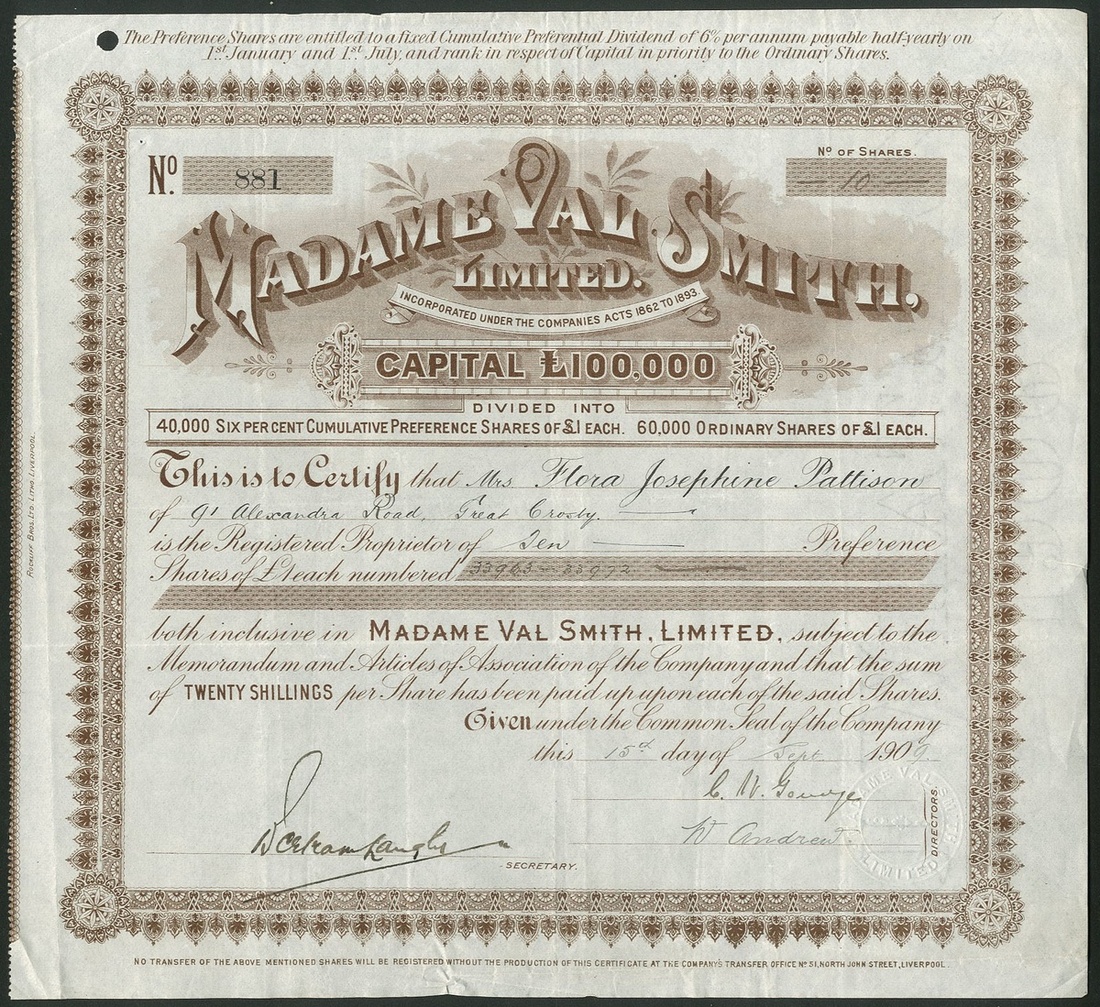 The Preference Shares are entitled to a fixed Cumulative Preferential Dividend of 6% per annum payable half-yearly on
1st January and 1st July, and rank in respect of Capital in priority to the Ordinary Shares.
No. 881
No OF SHARES.
10
MADAME VAL SMITH,
LIMITED.
INCORPORATED UNDER THE COMPANIES ACTS 1862 TO 1893.
CAPITAL £100,000
DIVIDED INTO
40,000 SIX PER CENT CUMULATIVE PREFERENCE SHARES OF £1 EACH. 60,000 ORDINARY SHARES OF £1 EACH.
This is to Certify that Mrs Flora Josephine Pattison
of 91 Alexandra Road, Great Crosby.
is the Registered Proprietor of Ten Preference
Shares of £1 each numbered 33963 - 33972
both inclusive in MADAME VAL SMITH, LIMITED, subject to the
Memorandum and Articles of Association of the Company and that the sum
of TWENTY SHILLINGS per Share has been paid up upon each of the said Shares.
Given under the Common Seal of the Company
this 15th day of Sept 1909.
DIRECTORS.
W Andrew
MADAME VAL SMITH LIMITED
Bertram
SECRETARY.
NO TRANSFER OF THE ABOVE MENTIONED SHARES WILL BE REGISTERED WITHOUT THE PRODUCTION OF THIS CERTIFICATE AT THE COMPANY'S TRANSFER OFFICE No 31, NORTH JOHN STREET, LIVERPOOL.
ROCKLIFF BROS. LTD. LITHO. LIVERPOOL.